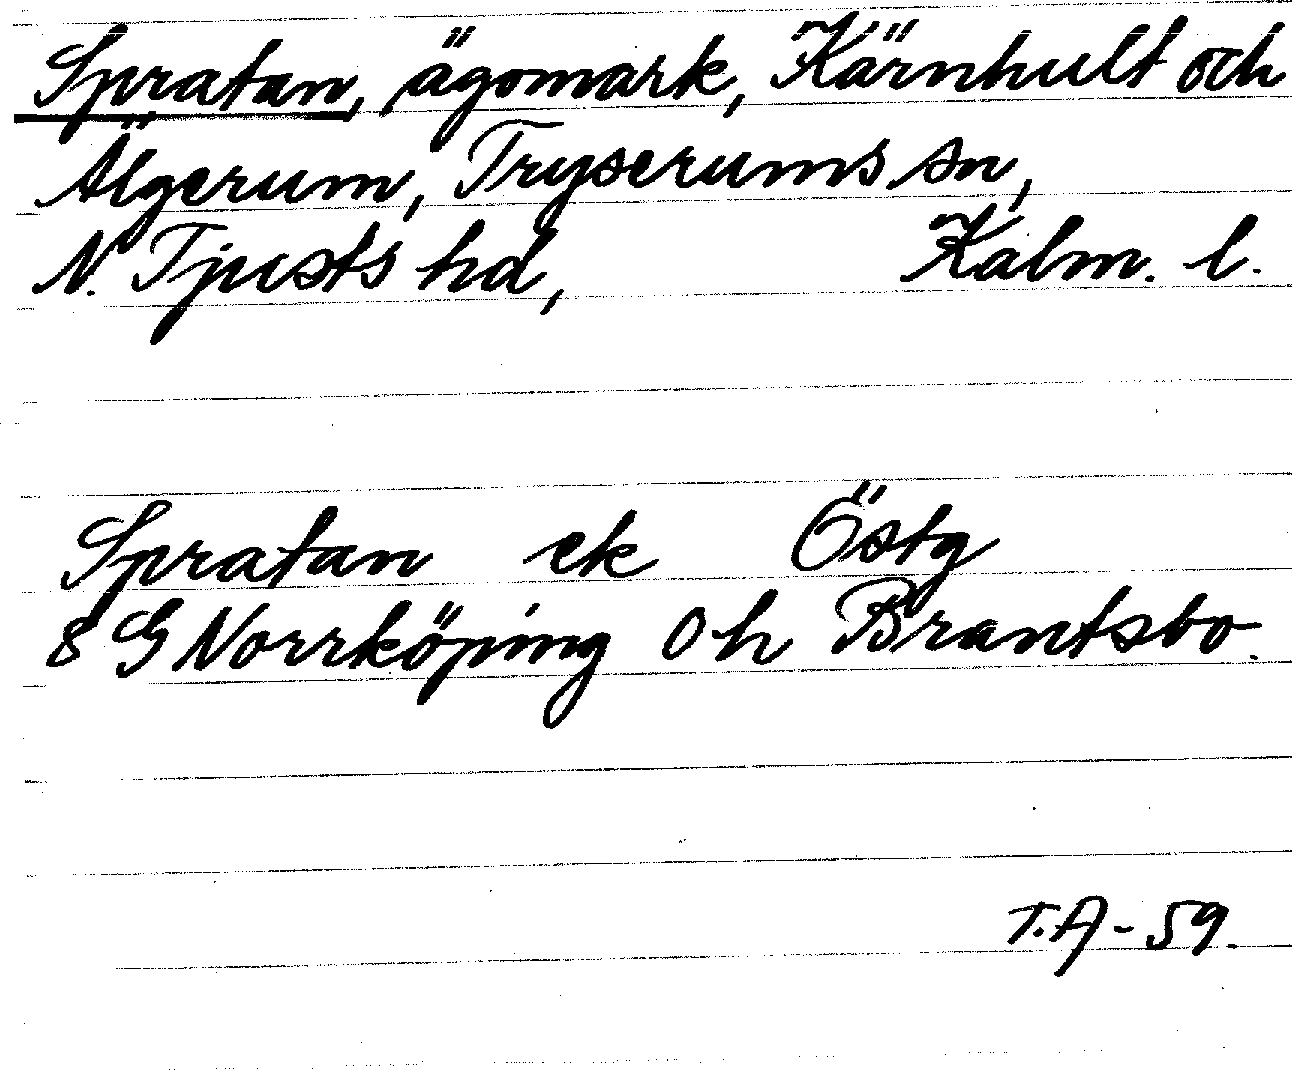 Spratan, ägomark, Kärnhult och
Älgerum, Tryserums sn,
N. Tjusts hd, Kalm. l.
Spratan ek Östg
8 G Norrköping 0 h Brantsbo.
T.A - 59.